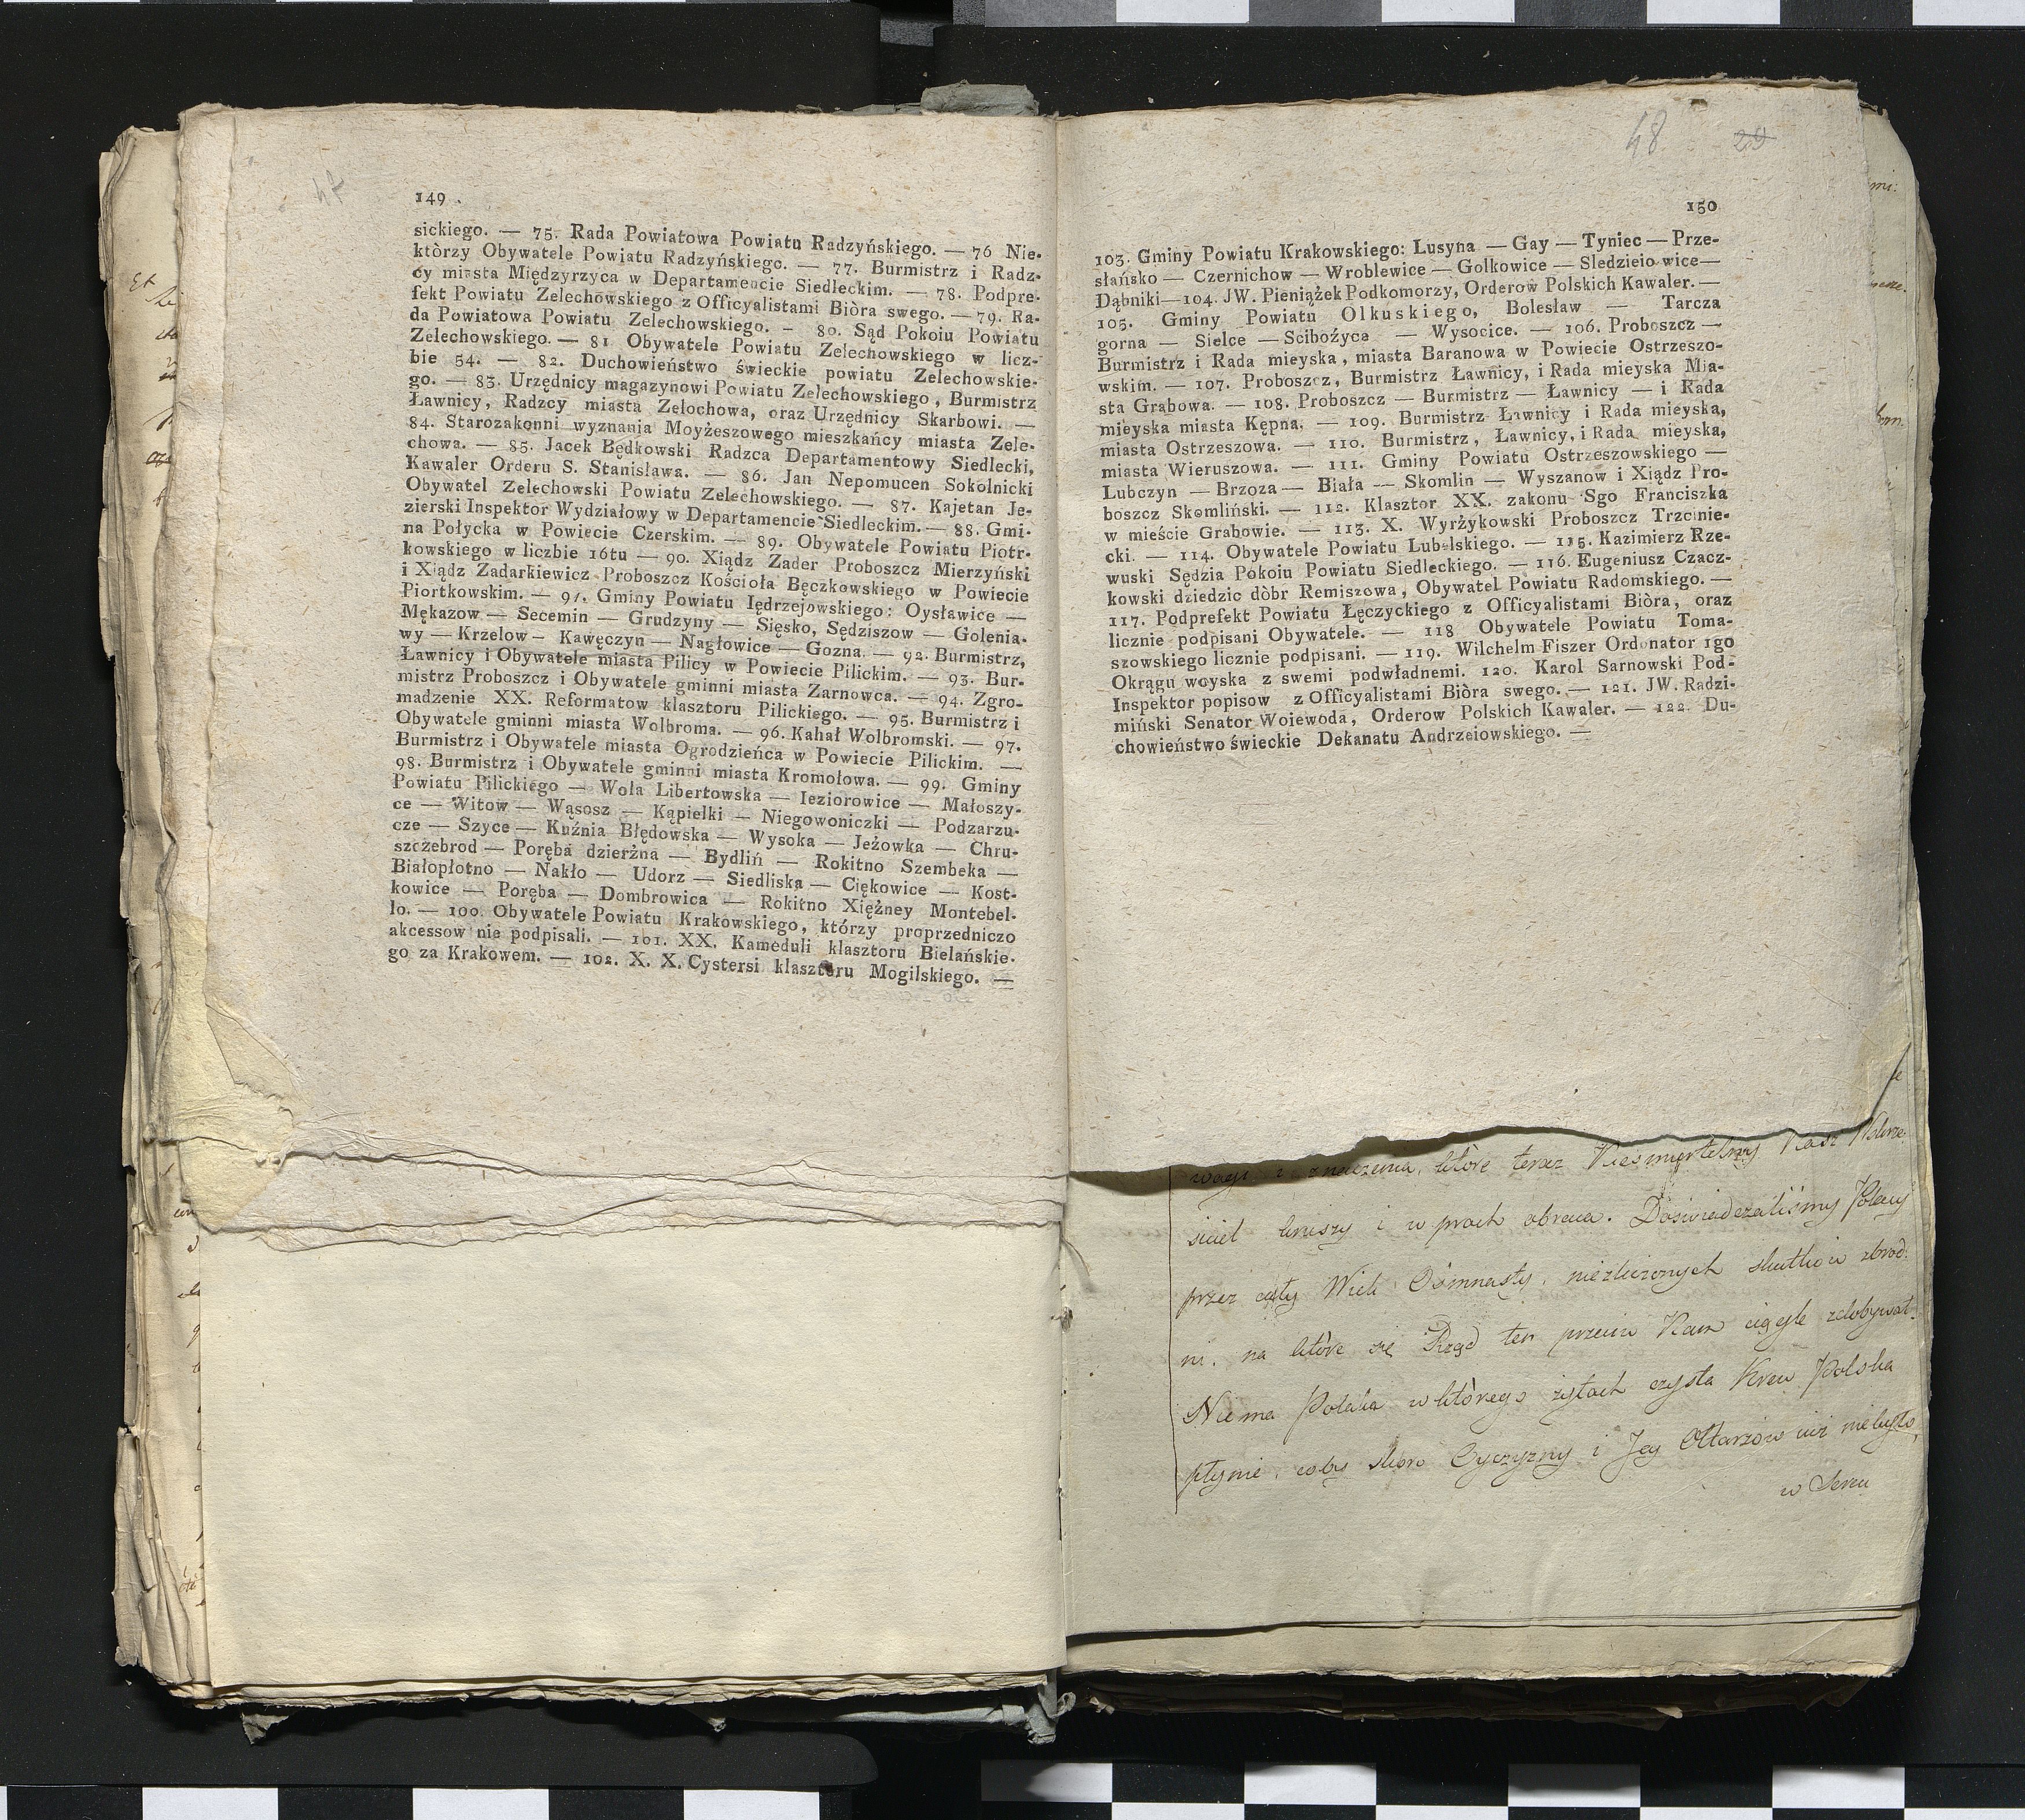 47
149
sickiego. — 75. Rada Powiatowa Powiatu Radzyńskiego. — 76 Nie-
ktòrzy Obywatele Powiatu Radzyńskiego. — 77. Burmistrz i Radz-
cy miasta Międzyrzyca w Departamencie Siedleckim. — 78. Podpre-
fekt Powiatu Zelechowskiego z Officyalistami Biòra swego. — 79. Ra-
da Powiatowa Powiatu Zelechowskiego. — 80. Sąd Pokoiu Powiatu
Zelechowskiego. — 81 Obywatele Powiatu Zelechowskiego w licz-
bie 54. — 82. Duchowieństwo świeckie powiatu Zelechowskie-
go. — 83. Urzędnicy magazynowi Powiatu Zelechowskiego, Burmistrz
Ławnicy, Radzcy miasta Zelochowa, oraz Urzędnicy Skarbowi. —
84. Starozakonni wyznania Moyżeszowego mieszkańcy miasta Zele-
chowa. — 85. Jacek Będkowski Radzca Departamentowy Siedlecki,
Kawaler Orderu S. Stanisława. — 86. Jan Nepomucen Sokolnicki
Obywatel Zelechowski Powiatu Zelechowskiego. — 87. Kajetan Je-
zierski Inspektor Wydziałowy w Departamencie Siedleckim. — 88. Gmi-
na Połycka w Powiecie Czerskim. — 89. Obywatele Powiatu Piotr-
kowskiego w liczbie 16tu — 90. Xiądz Zader Proboszcz Mierzyński
i Xiądz Zadarkiewicz Proboszcz Kościoła Bęczkowskiego w Powiecie
Piortkowskim. — 91. Gminy Powiatu Iędrzejowskiego: Oysławice —
Mękazow — Secemin — Grudzyny — Sięsko, Sędziszow — Golenia-
wy — Krzelow — Kawęczyn — Nagłowice — Gozna. — 92. Burmistrz,
Ławnicy i Obywatele miasta Pilicy w Powiecie Pilickim. — 93. Bur-
mistrz Proboszcz i Obywatele gminni miasta Zarnowca. — 94. Zgro-
madzenie XX. Reformatow klasztoru Pilickiego. — 95. Burmistrz i
Obywatele gminni miasta Wolbroma. — 96. Kahał Wolbromski. — 97.
Burmistrz i Obywatele miasta Ogrodzieńca w Powiecie Pilickim. —
98. Burmistrz i Obywatele gminni miasta Kromołowa. — 99. Gminy
Powiatu Pilickiego — Wola Libertowska — Ieziorowice — Małoszy-
ce — Witow — Wąsosz — Kąpielki — Niegowoniczki — Podzarzu-
cze — Szyce — Kuźnia Błędowska — Wysoka — Jeżowka — Chru-
szczebrod — Poręba dzierżna — Bydliń — Rokitno Szembeka —
Białopłotno — Nakło — Udorz — Siedliska — Ciękowice — Kost-
kowice — Poręba — Dombrowica — Rokitno Xiężney Montebel-
lo. — 100. Obywatele Powiatu Krakowskiego, którzy proprzedniczo
akcessow nie podpisali. — 101. XX. Kameduli klasztoru Bielańskie-
go za Krakowem. — 102. X. X. Cystersi klasztoru Mogilskiego. —
48 29
150
103. Gminy Powiatu Krakowskiego: Lusyna — Gay — Tyniec — Prze-
słańsko — Czernichow — Wroblewice — Golkowice — Sledzieiowice —
Dąbniki — 104. JW. Pieniążek Podkomorzy, Orderow Polskich Kawaler. —
105. Gminy Powiatu Olkuskiego, Bolesław — Tarcza
gorna — Sielce — Scibożyce — Wysocice. — 106. Proboszcz —
Burmistrz i Rada mieyska, miasta Baranowa w Powiecie Ostrzeszo-
wskim. — 107. Proboszcz, Burmistrz Ławnicy, i Rada mieyska Mia-
sta Grabowa. — 108. Proboszcz — Burmistrz — Ławnicy — i Rada
mieyska miasta Kępna. — 109. Burmistrz Ławnicy i Rada mieyska,
miasta Ostrzeszowa. — 110. Burmistrz, Ławnicy, i Rada mieyska,
miasta Wieruszowa. — 111. Gminy Powiatu Ostrzeszowskiego —
Lubczyn — Brzoza — Biała — Skomlin — Wyszanow i Xiądz Pro-
boszcz Skomliński. — 112. Klasztor XX. zakonu Sgo Franciszka
w mieście Grabowie. — 113. X. Wyrżykowski Proboszcz Trzcinie-
cki. — 114. Obywatele Powiatu Lubelskiego. — 115. Kazimierz Rze-
wuski Sędzia Pokoiu Powiatu Siedleckiego. — 116. Eugeniusz Czacz-
kowski dziedzic dòbr Remiszowa, Obywatel Powiatu Radomskiego. —
117. Podprefekt Powiatu Łęczyckiego z Officyalistami Biòra, oraz
licznie podpisani Obywatele. — 118 Obywatele Powiatu Toma-
szowskiego licznie podpisani. — 119. Wilchelm Fiszer Ordonator 1go
Okrągu woyska z swemi podwładnemi. 120. Karol Sarnowski Pod-
Inspektor popisow z Officyalistami Biòra swego. — 121. JW. Radzi-
miński Senator Woiewoda, Orderow Polskich Kawaler. — 122. Du-
chowieństwo świeckie Dekanatu Andrzeiowskiego. —
znaczenia, które teraz Nieśmiertelny Nasz Wskrze-
siciel kruszy i w proch obraca. Doświadczaliśmy Polacy
przez cały Wiek Ośmnasty, niezliczonych skutków zbrod-
ni, na które się Rząd ten przeciw Nam ciągle zdobywał.
Niema Polaka w którego żyłach czysta Krew Polska
płynie, coby skoro Oyczyzny i Jey Ołtarzów iuż niebyło,
w Sercu